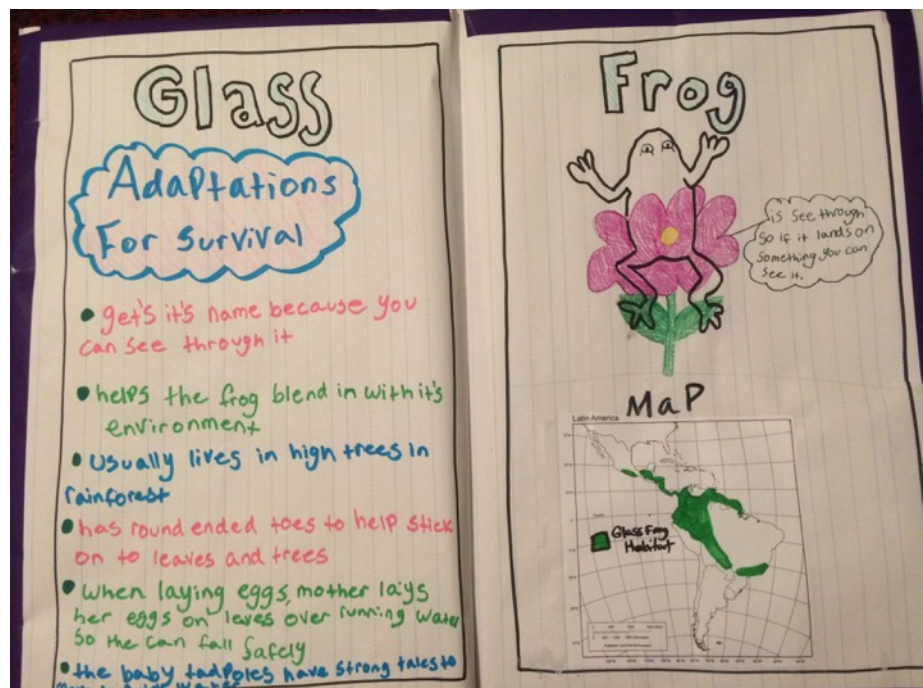 Glass
Adaptations
For Survival
• get's it's name because you
can see through it
• helps the frog blend in with it's
environment
• Usually lives in high trees in
rainforest
• has round ended toes to help stick
on to leaves and trees
• when laying eggs, mother lays
her eggs on leves over running water
so the can fall safely
• the baby tadpoles have strong tales to
Frog
is see through
so if it lands on
something you can
see it.
MaP
Latin America
Glass Frog
Habitat